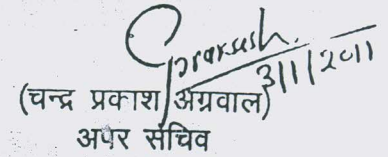 Cprakash.
3/1/2011
(चन्द्र प्रकाश अग्रवाल)
अपर सचिव